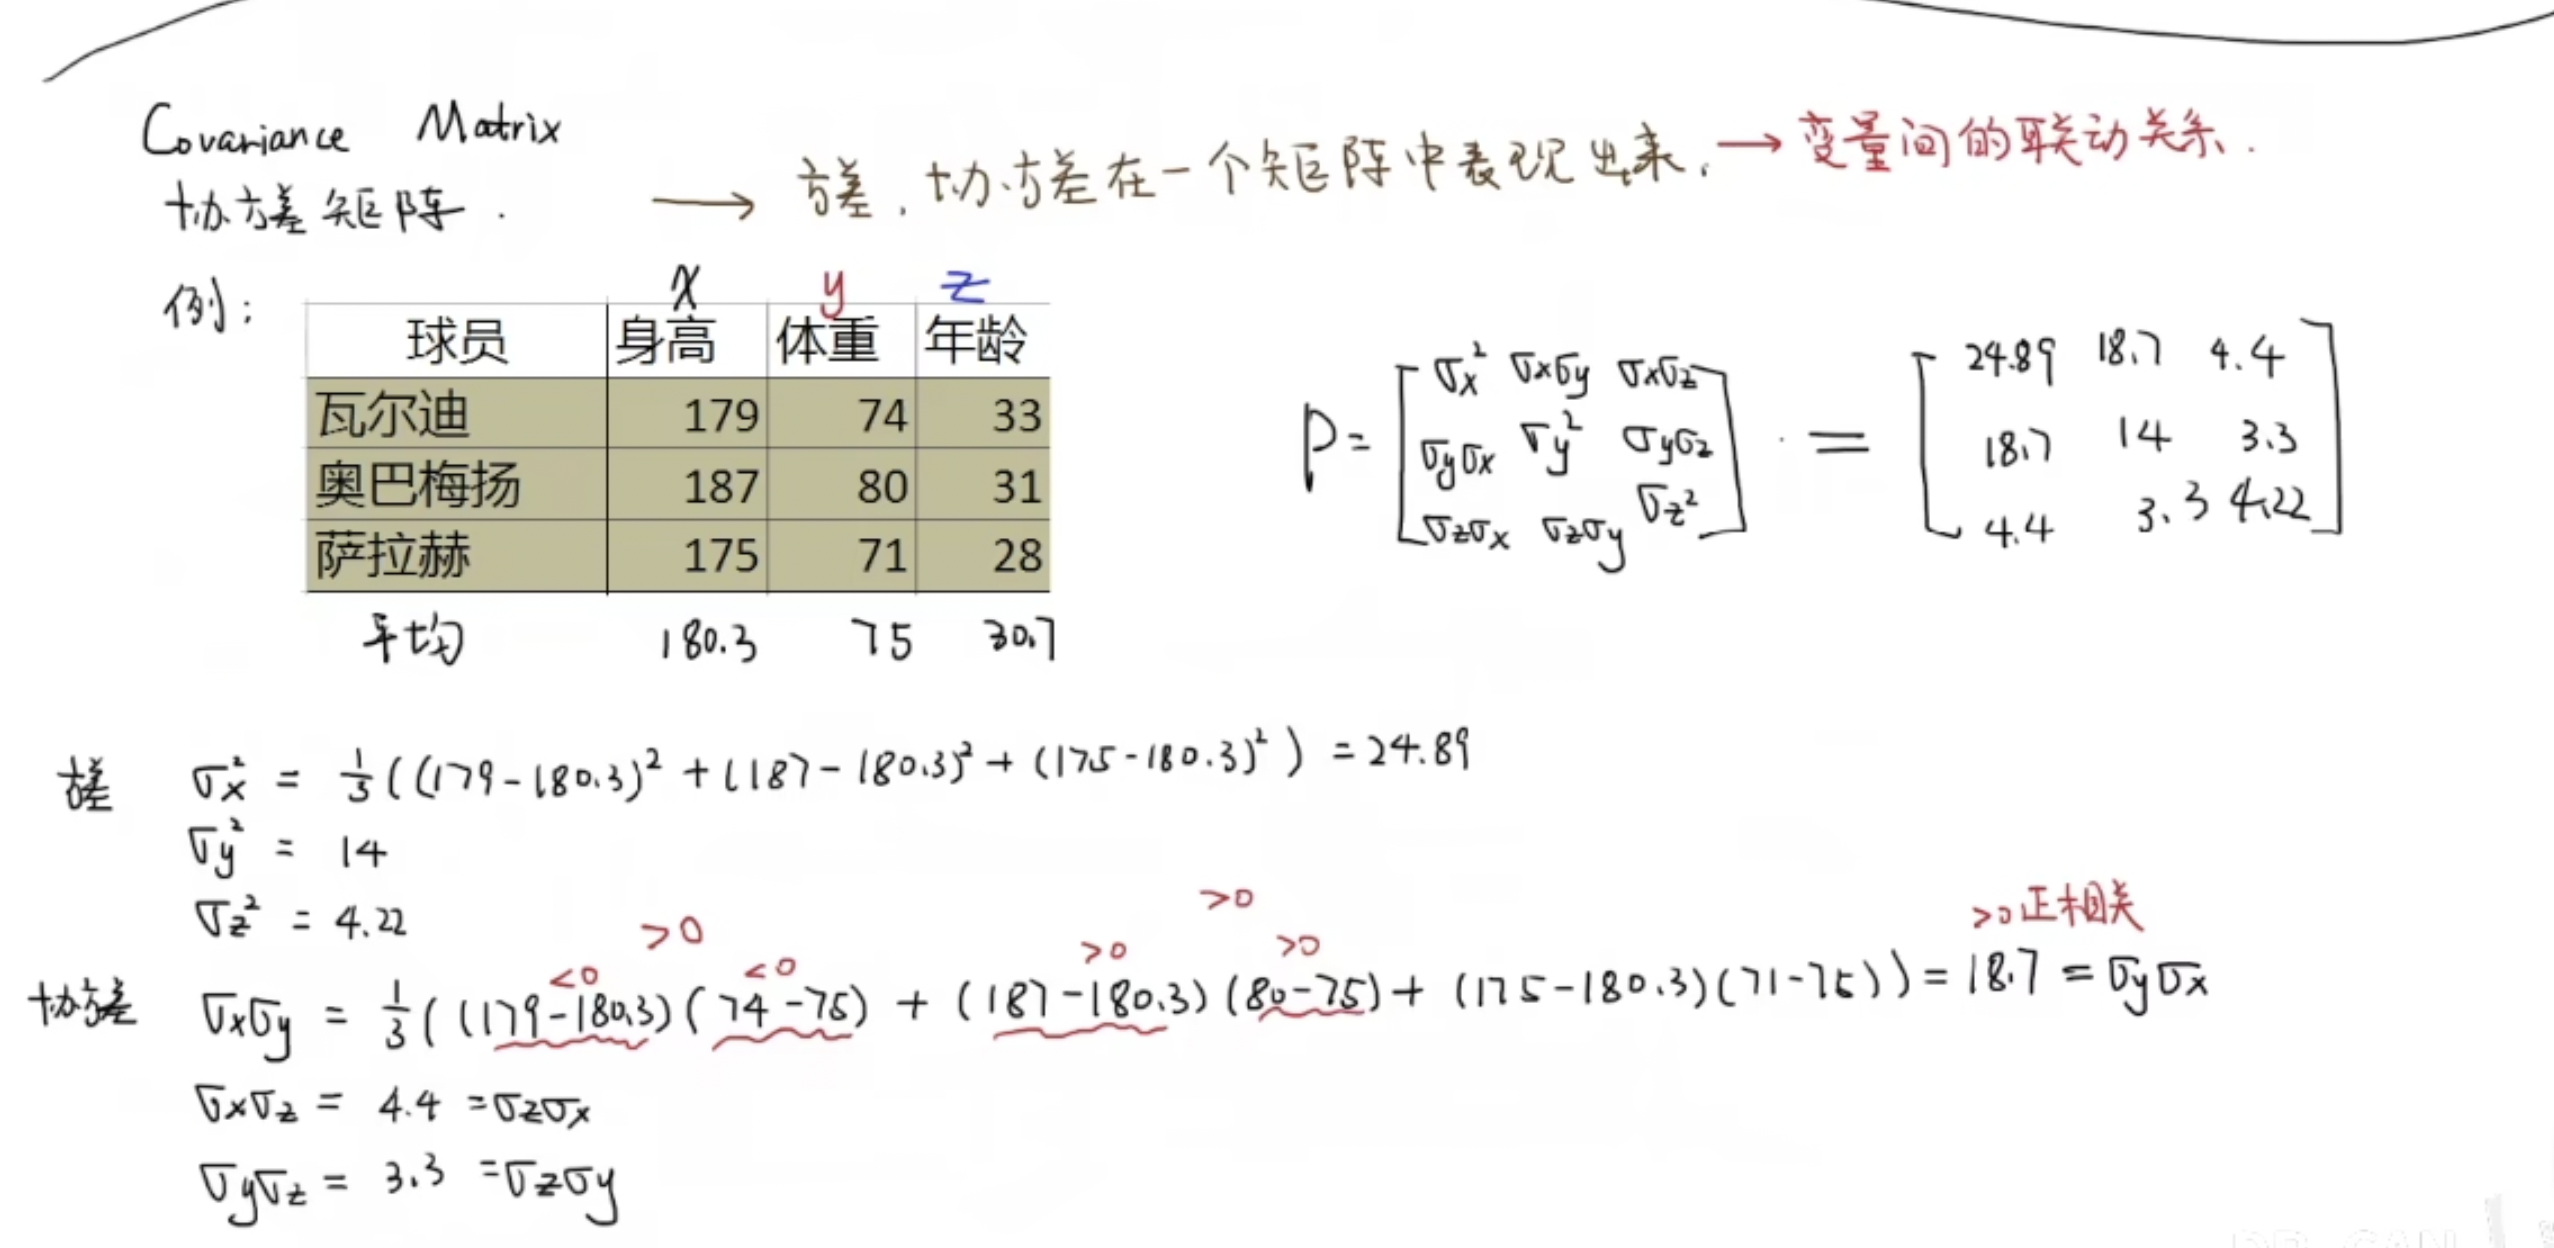 Covariance Matrix
协方差矩阵. → 方差, 协方差在一个矩阵中表现出来, → 变量间的联动关系.
例:
x y z
球员 身高 体重 年龄
瓦尔迪 179 74 33
奥巴梅扬 187 80 31
萨拉赫 175 71 28
平均 180.3 75 30.7
P = [σx² σxσy σxσz
σyσx σy² σyσz
σzσx σzσy σz²]
= [24.89 18.7 4.4
18.7 14 3.3
4.4 3.3 4.22]
方差 σx² = 1/3((179-180.3)² + (187-180.3)² + (175-180.3)²) = 24.89
σy² = 14
σz² = 4.22
>0 >0 >0正相关
<0 <0 >0 >0
协方差 σxσy = 1/3((179-180.3)(74-75) + (187-180.3)(80-75) + (175-180.3)(71-75)) = 18.7 = σyσx
σxσz = 4.4 = σzσx
σyσz = 3.3 = σzσy
DR_CAN